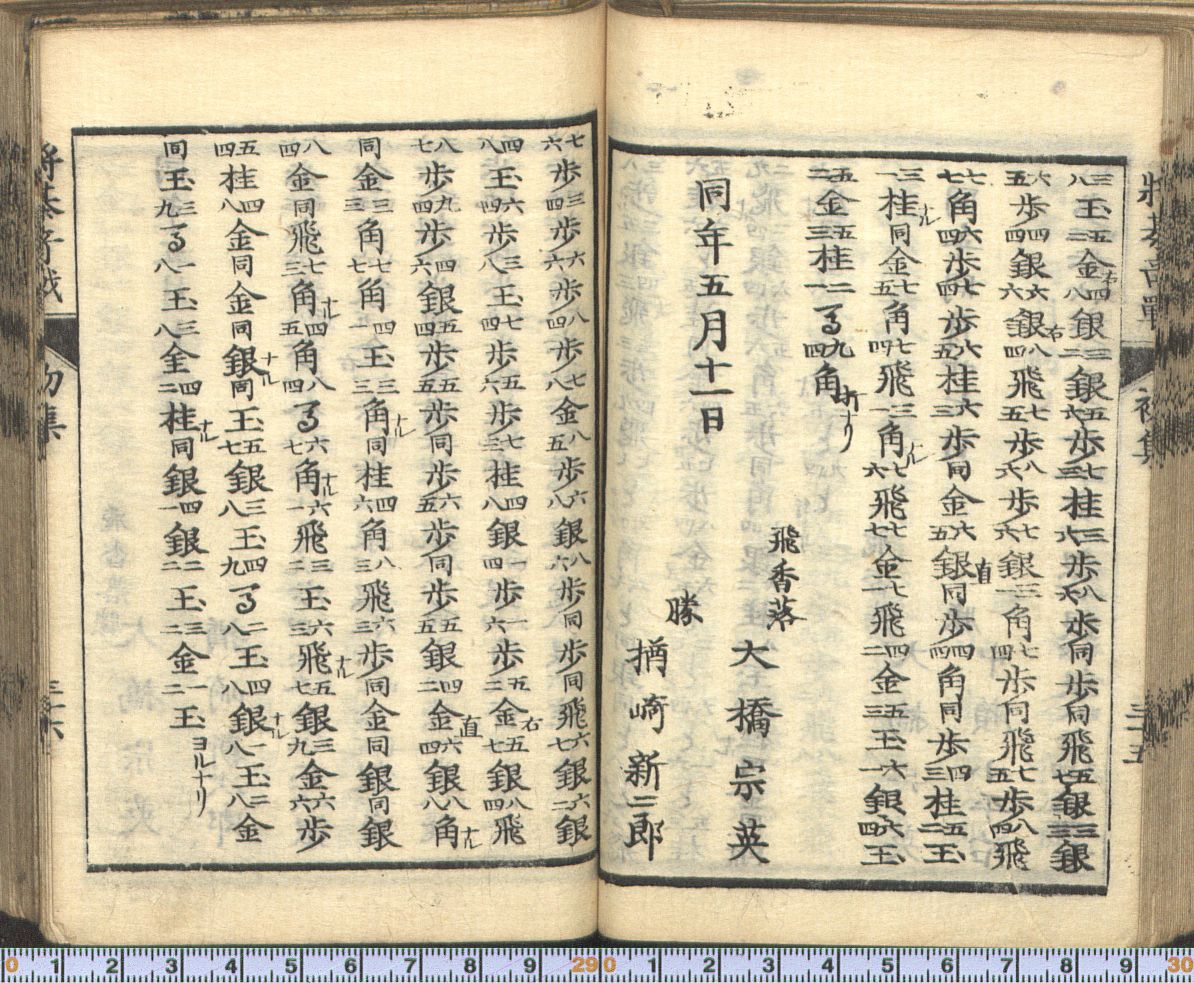 將棊奇戰　初集　三十五
三八玉五二金右四八銀三二銀五六歩七三桂三六歩八六歩同歩同飛五七銀三三銀
六五歩四四銀六六銀右八四飛七五歩八六歩七六銀三一角七四歩同飛七五歩八四飛
七七角六四歩七四歩六五桂六三歩同金六五銀直同歩四四角同歩四三桂五二玉
三一桂ナル同金七五角七四飛三一角ナル七六飛七七金一七飛四二金五三玉六一銀六四玉
五二金五三桂二一馬九四角
同年五月十一日
飛香落　大橋宗英
勝　楢崎新二郎
七六歩三四歩六六歩八四歩七八金八五歩六八銀八六歩同歩同飛六七銀六二銀
四八玉六四歩三八玉七四歩五六歩七三桂四八銀一四歩一六歩五二金右五七銀八四飛
八七歩九四歩四六銀五四歩五五歩同歩六五歩同歩五五銀四二金直六四銀八八角ナル
同金三三角七七角四一玉三三角ナル同桂四六角八三飛六三歩同金同銀同銀
八四金同飛七三角ナル四五角八四馬六七角ナル六一飛三二玉六三飛ナル五七銀三九金六六歩
五四桂四八金同金同銀ナル同玉五七銀三八玉四九馬二八玉四八銀ナル一八玉二八金
同玉三九馬一八玉三八金四二桂ナル同銀四一銀二二玉三二金一二玉ヨルナリ
將棊奇戰　初集　三十六